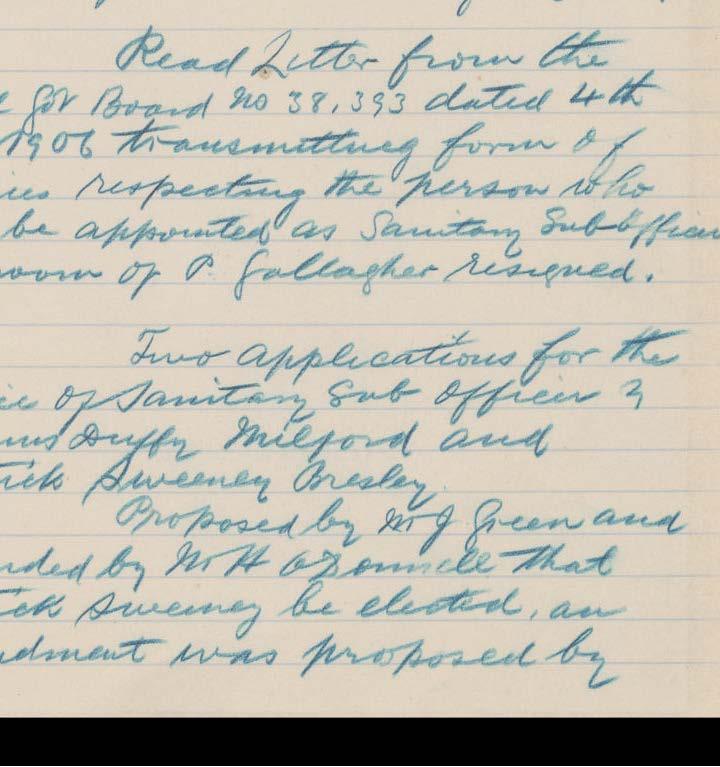 Read Letter from the
l Gov Board No 38,393 dated 4th
1906 transmitting form of
ies respecting the person who
be appointed as Sanitary Sub officer
room of P Gallagher resigned.
Two applications for the
ice of Sanitary Sub Officer
Duffy Milford and
rick Sweeney
Proposed by Mr J Green and
nded by Mr H O'Donnell that
rick Sweeney be elected, an
ndment was proposed by